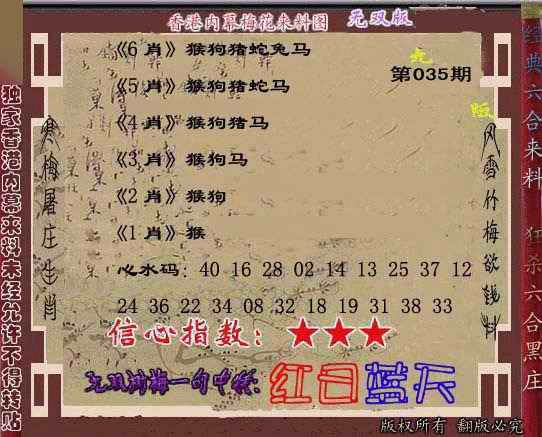 香港内幕梅花来料图 无双版
《6 肖》猴狗猪蛇兔马
第035期
《5 肖》猴狗猪蛇马
《4 肖》猴狗猪马
《3 肖》猴狗马
《2 肖》猴狗
《1 肖》猴
心水码：40 16 28 02 14 13 25 37 12
24 36 22 34 08 32 18 19 31 38 33
信心指数：★★★
红日蓝天
独家香港内幕来料未经允许不得转贴
寒梅屠庄生肖
风雪竹梅欲钱料
经典六合来料 狂杀六合黑庄
版权所有 翻版必究